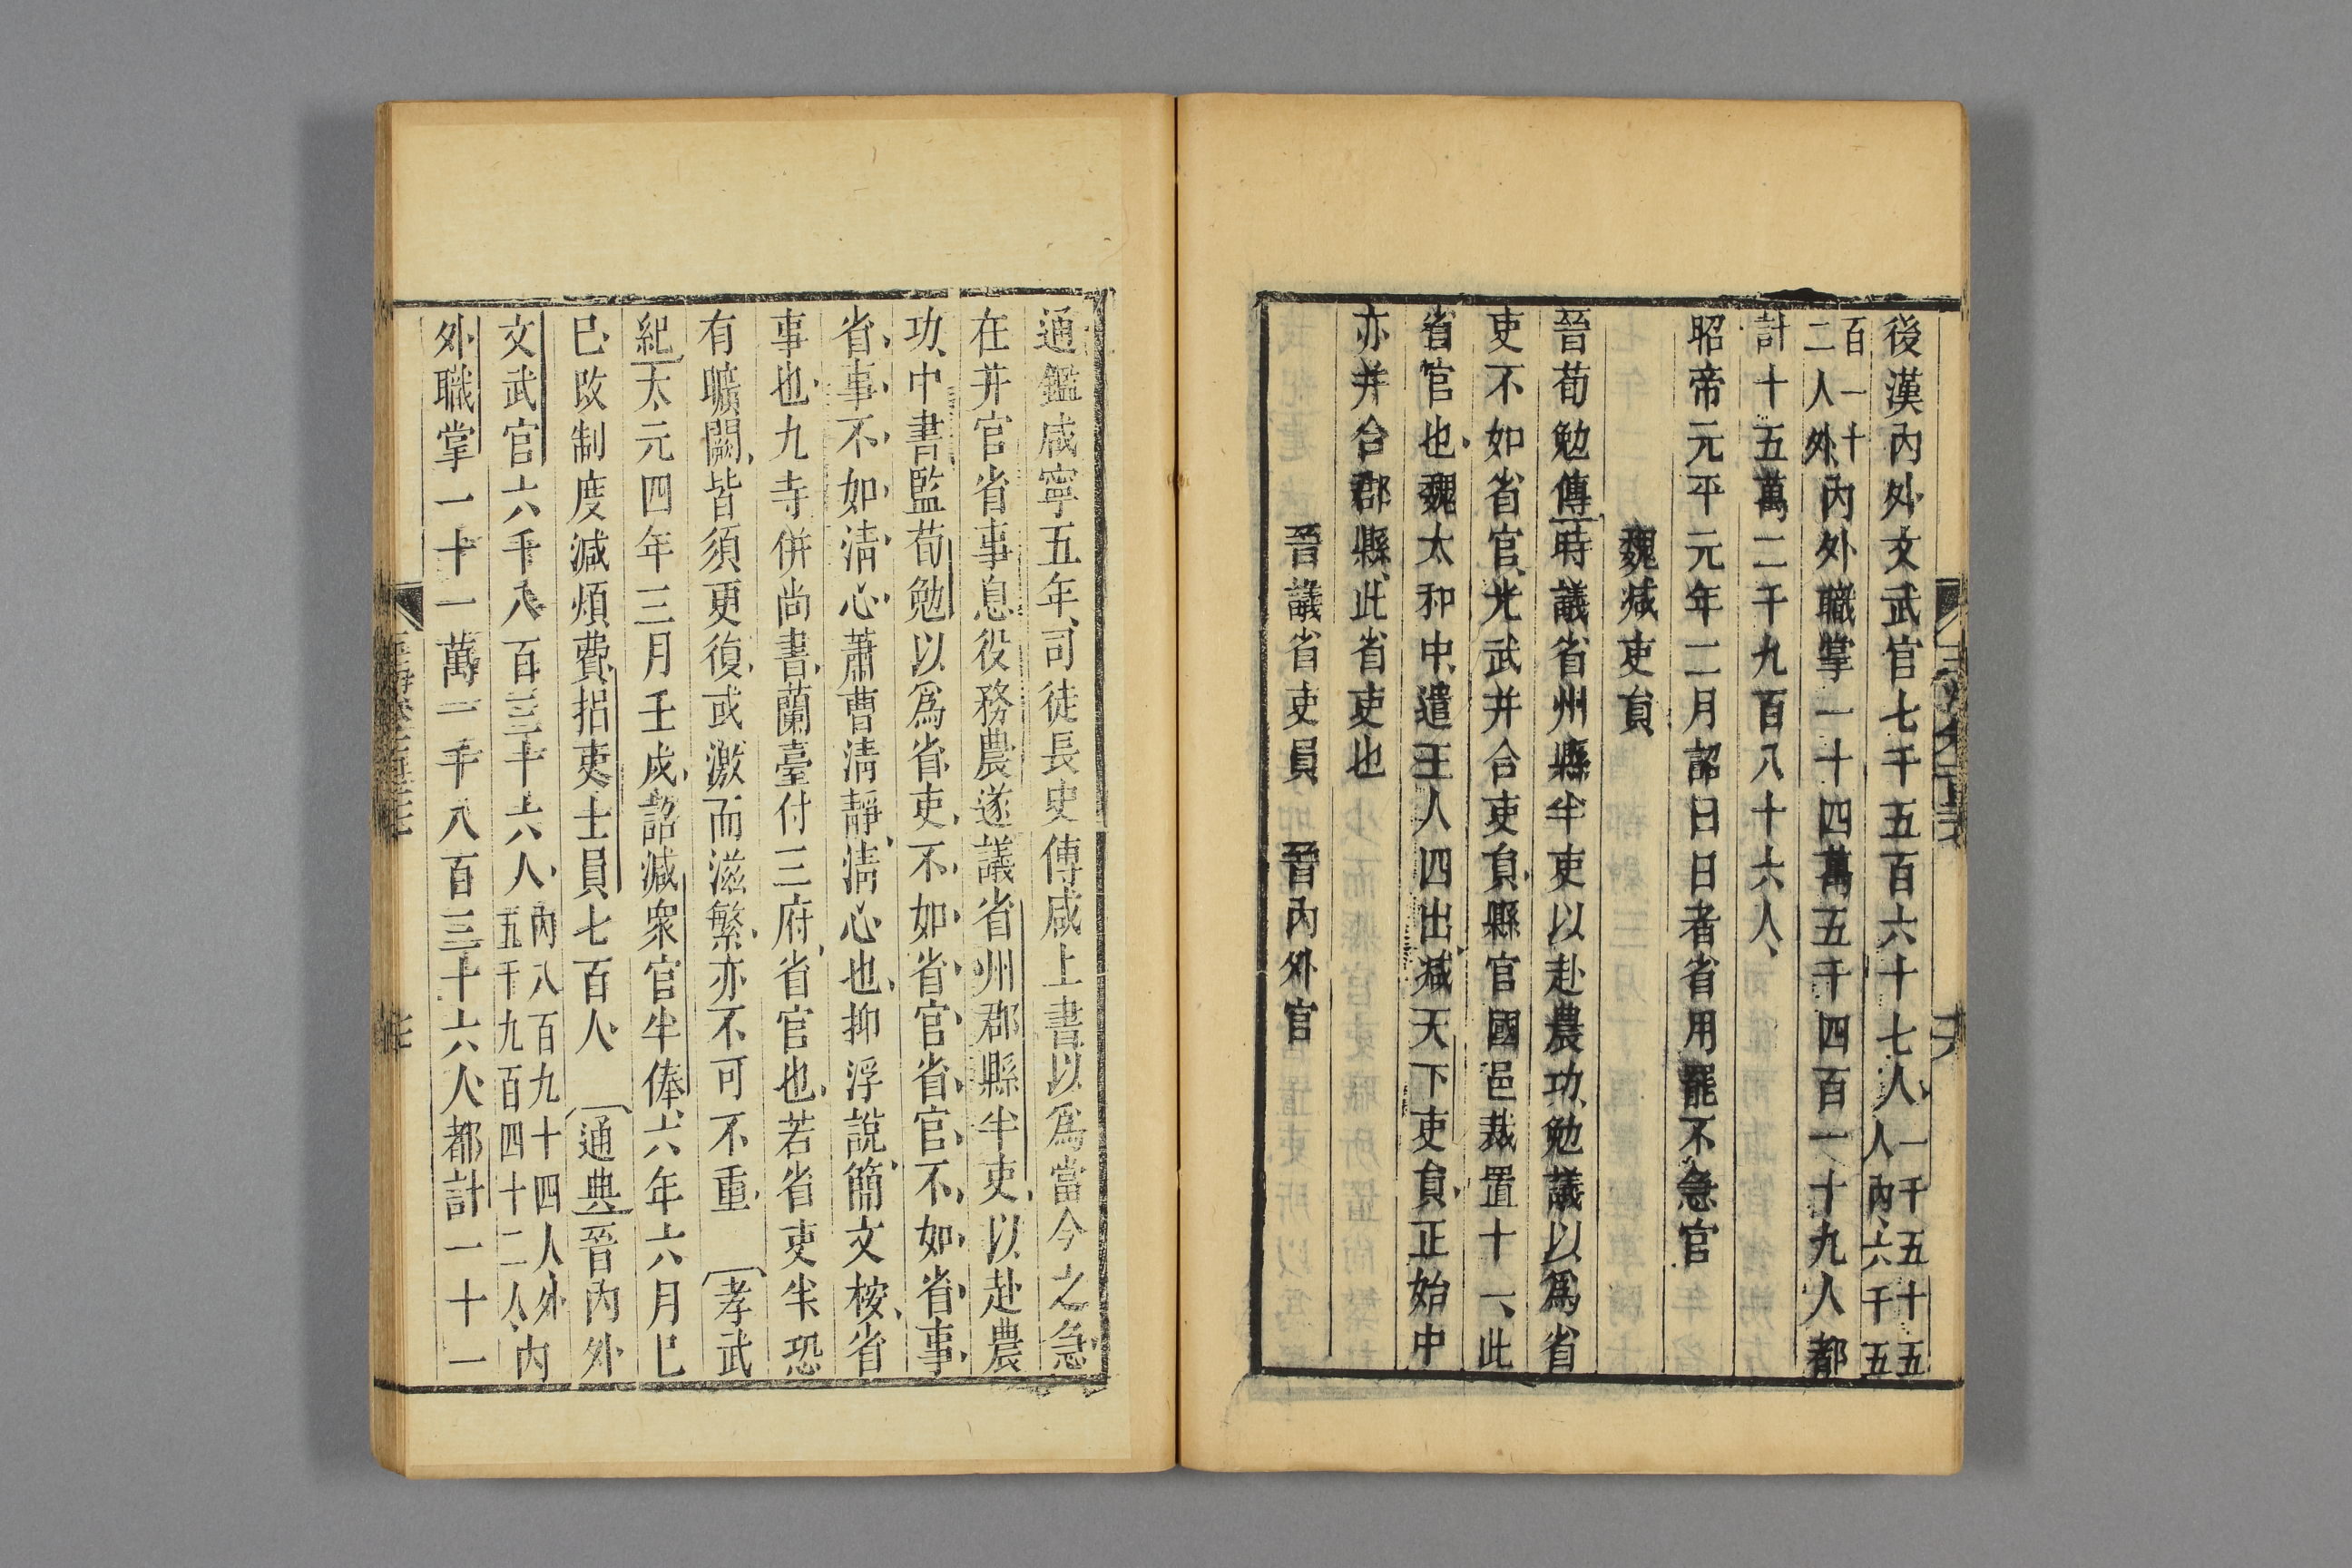 後漢內外文武官七千五百六十七人一千五十五人內六千五
百一十二人外內外職掌一十四萬五千四百一十九人都
計十五萬二千九百八十六人
昭帝元平元年二月詔曰日者省用罷不急官
魏減吏員
晉荀勉傳時議省州縣半吏以赴農功勉議以爲省
吏不如省官光武并合吏員縣官國邑裁置十一此
省官也魏太和中遣王人四出減天下吏員正始中
亦并合郡縣此省吏也
晉議省吏員 晉內外官
通鑑咸寧五年司徒長史傅咸上書以爲當今之急
在并官省事息役務農遂議省州郡縣半吏以赴農
功中書監荀勉以爲省吏不如省官省官不如省事
省事不如淸心蕭曹淸靜淸心也抑浮說簡文桉省
事也九寺併尚書蘭臺付三府省官也若省吏半恐
有曠闕皆須更復或激而滋繁亦不可不重 孝武
紀太元四年三月壬戌詔減衆官半俸六年六月巳
巳改制度減煩費損吏士員七百人 通典晉內外
文武官六千八百三十六人內八百九十四人外五千九百四十二人內
外職掌一十一萬一千八百三十六人都計一十一